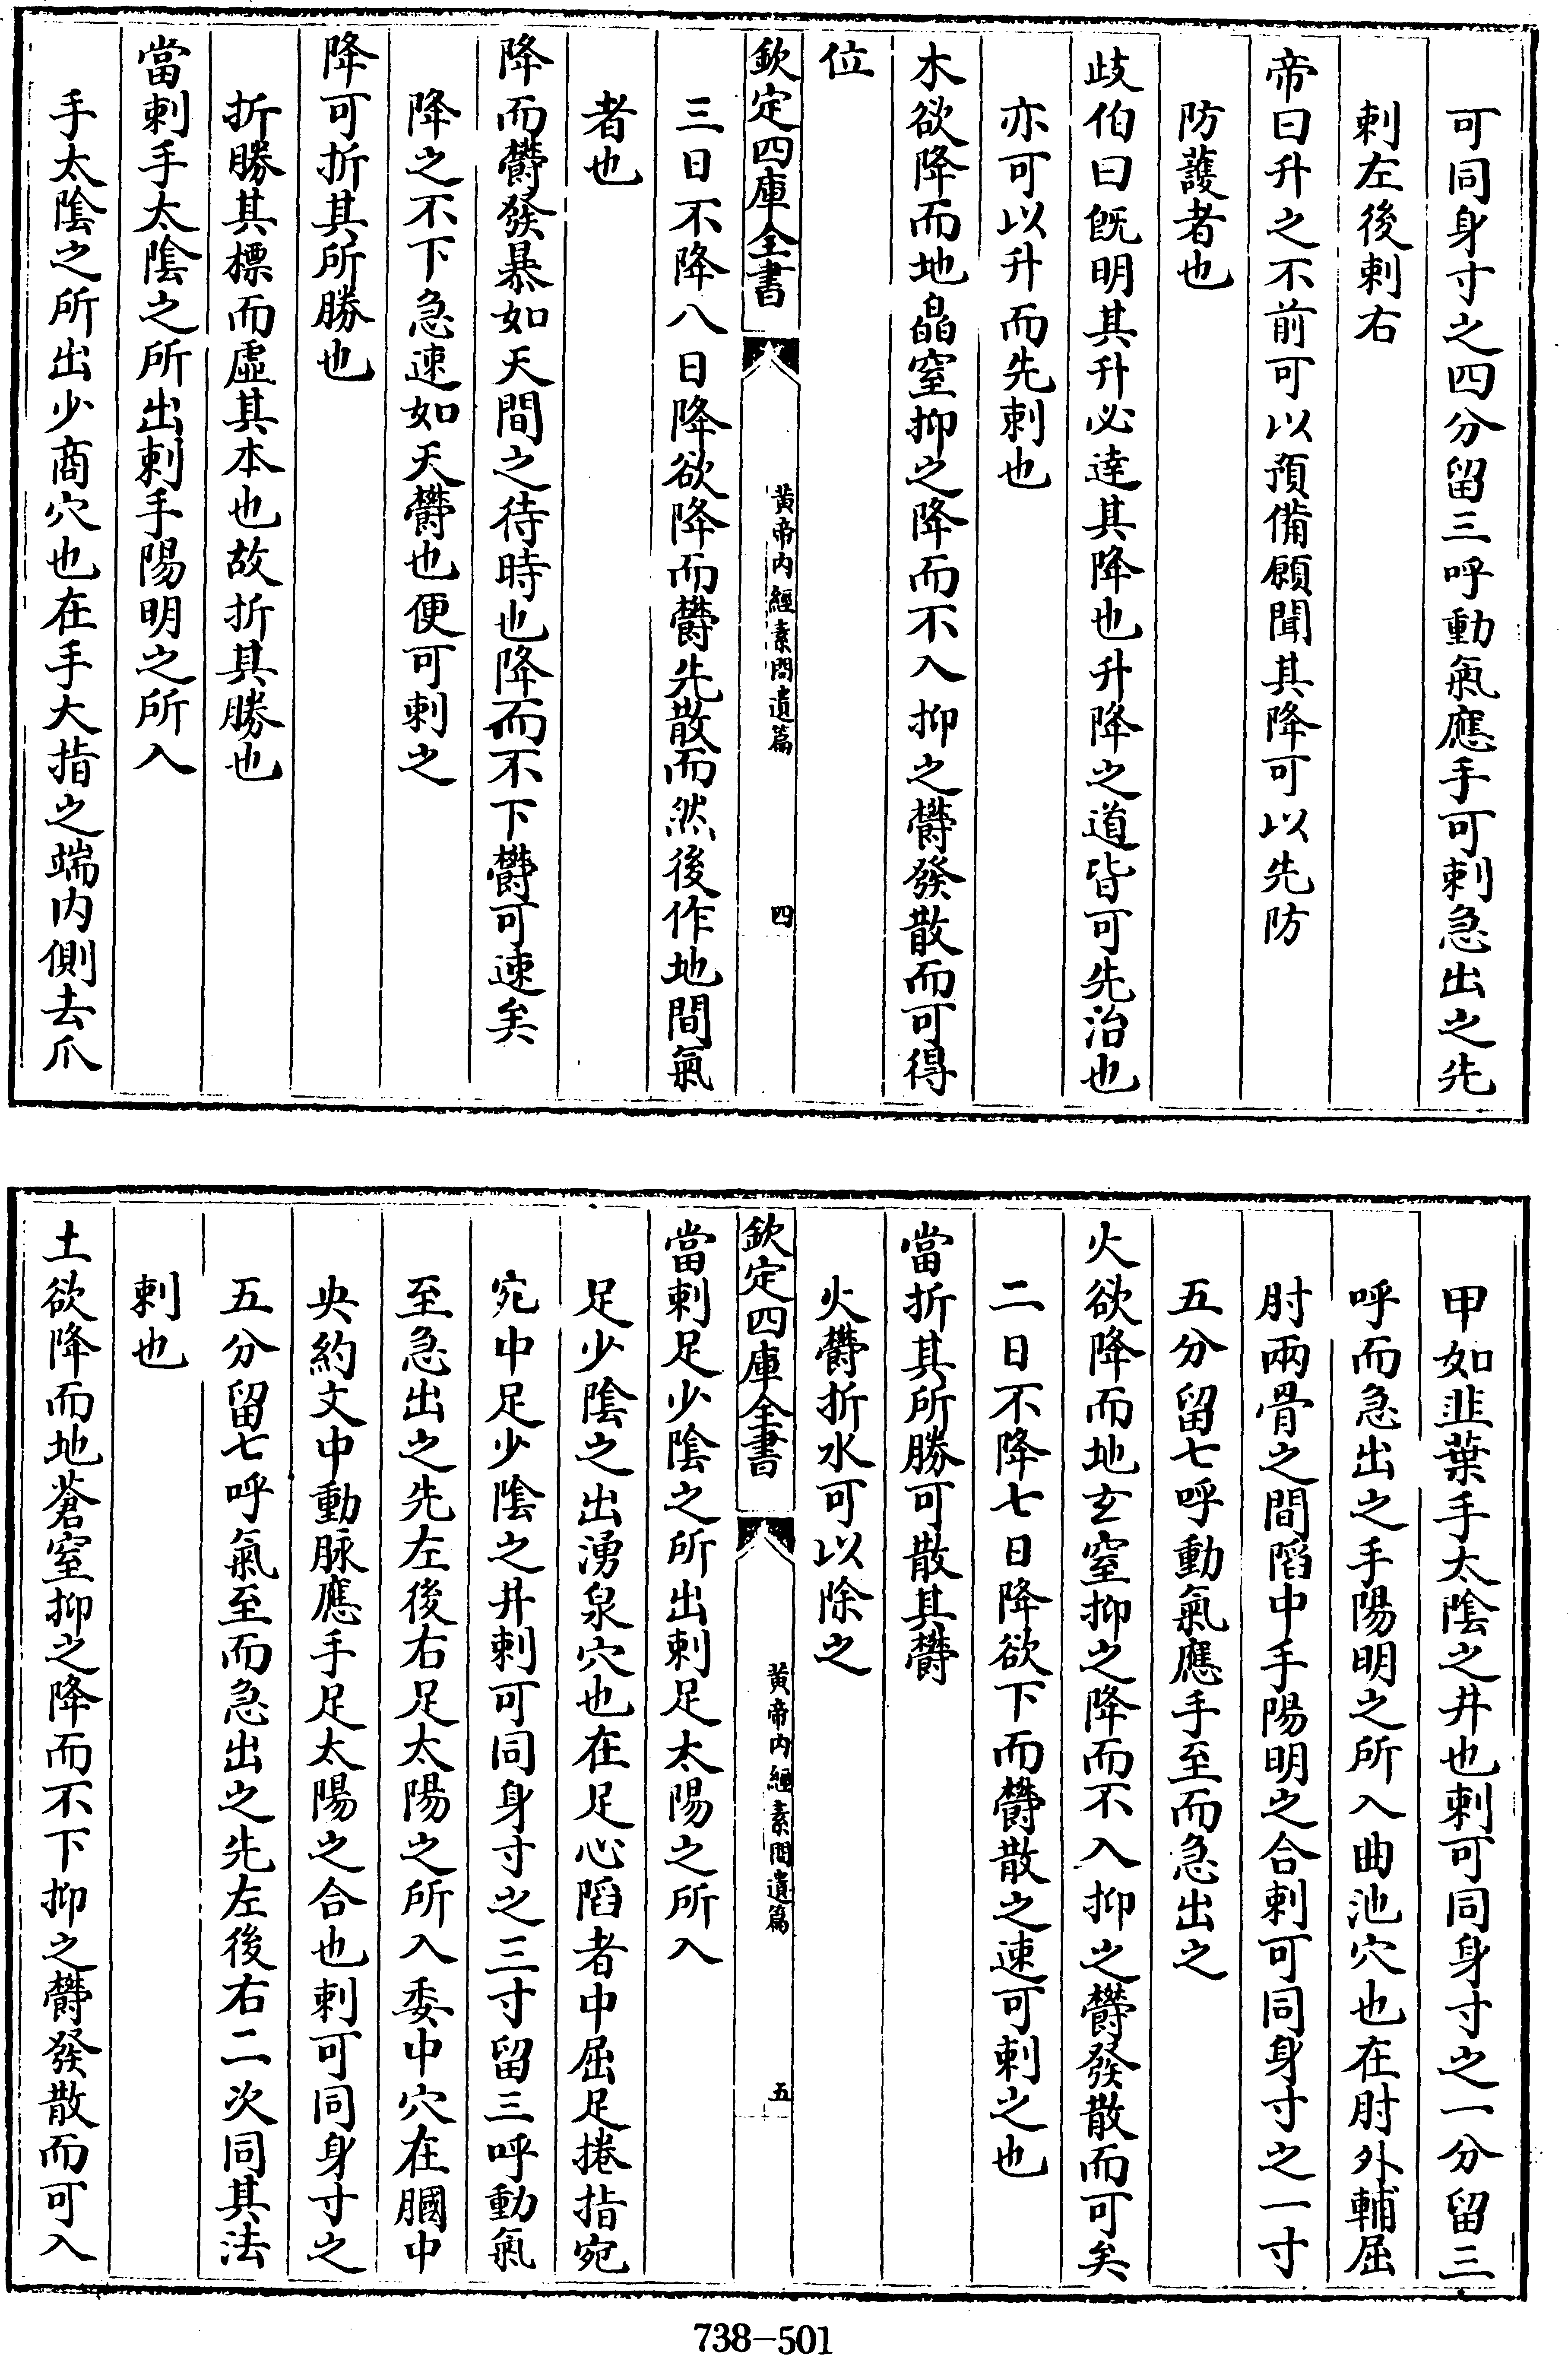 可同身寸之四分留三呼動氣應手可刺急出之先
刺左後刺右
帝曰升之不前可以預備願聞其降可以先防
防護者也
歧伯曰既明其升必達其降也升降之道皆可先治也
亦可以升而先刺也
木欲降而地皛窒抑之降而不入抑之欝發散而可得
位
欽定四庫全書
黄帝内經素問遺篇
四
三日不降八日降欲降而欝先散而然後作地間氣
者也
降而欝發暴如天間之待時也降而不下欝可速矣
降之不下急速如天欝也便可刺之
降可折其所勝也
折勝其標而虛其本也故折其勝也
當刺手太陰之所出刺手陽明之所入
手太陰之所出少商穴也在手大指之端内側去爪
甲如韭葉手太陰之井也刺可同身寸之一分留三
呼而急出之手陽明之所入曲池穴也在肘外輔屈
肘兩骨之間䧟中手陽明之合刺可同身寸之一寸
五分留七呼動氣應手至而急出之
火欲降而地玄窒抑之降而不入抑之欝發散而可矣
二日不降七日降欲下而欝散之速可刺之也
當折其所勝可散其欝
火欝折水可以除之
欽定四庫全書
黄帝内經素問遺篇
五
當刺足少陰之所出刺足太陽之所入
足少陰之出湧泉穴也在足心䧟者中屈足捲指宛
宛中足少陰之井刺可同身寸之三寸留三呼動氣
至急出之先左後右足太陽之所入委中穴在膕中
央約文中動脉應手足太陽之合也刺可同身寸之
五分留七呼氣至而急出之先左後右二次同其法
刺也
土欲降而地蒼窒抑之降而不下抑之欝發散而可入
738-501